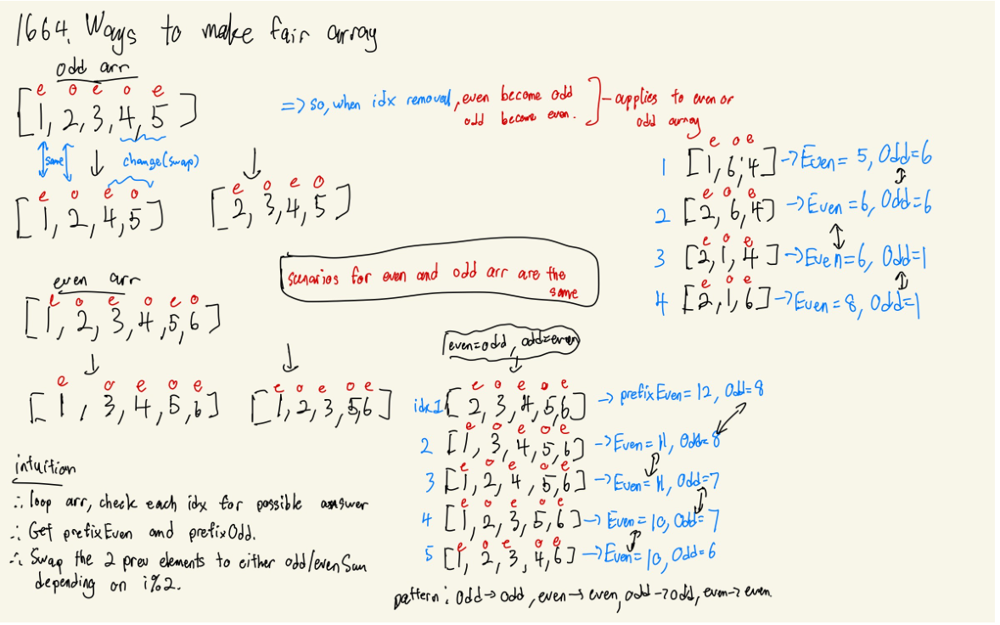 1664. Ways to make fair array
odd arr
e o e o e
[1, 2, 3, 4, 5]
same
change(swap)
e o e o
[1, 2, 4, 5]
e o e o
[2, 3, 4, 5]
=> so, when idx removal, even become odd
odd become even.
- applies to even or
odd array
e o e
1 [1, 6, 4] -> Even = 5, Odd = 6
e o e
2 [2, 6, 4] -> Even = 6, Odd = 6
e o e
3 [2, 1, 4] -> Even = 6, Odd = 1
e o e
4 [2, 1, 6] -> Even = 8, Odd = 1
scenarios for even and odd arr are the
same
even arr
e o e o e o
[1, 2, 3, 4, 5, 6]
e o e o e
[1, 3, 4, 5, 6]
e o e o e
[1, 2, 3, 5, 6]
even=odd, odd=even
e o e o e
idx 1 [2, 3, 4, 5, 6] -> prefixEven = 12, Odd = 8
e o e o e
2 [1, 3, 4, 5, 6] -> Even = 11, Odd = 8
e o e o e
3 [1, 2, 4, 5, 6] -> Even = 11, Odd = 7
e o e o e
4 [1, 2, 3, 5, 6] -> Even = 10, Odd = 7
e o e o e
5 [1, 2, 3, 4, 6] -> Even = 10, Odd = 6
pattern: odd -> odd, even -> even, odd -> odd, even -> even
intuition
∴ loop arr, check each idx for possible answer
∴ Get prefixEven and prefixOdd.
∴ Swap the 2 prev elements to either odd/evenSum
depending on i%2.